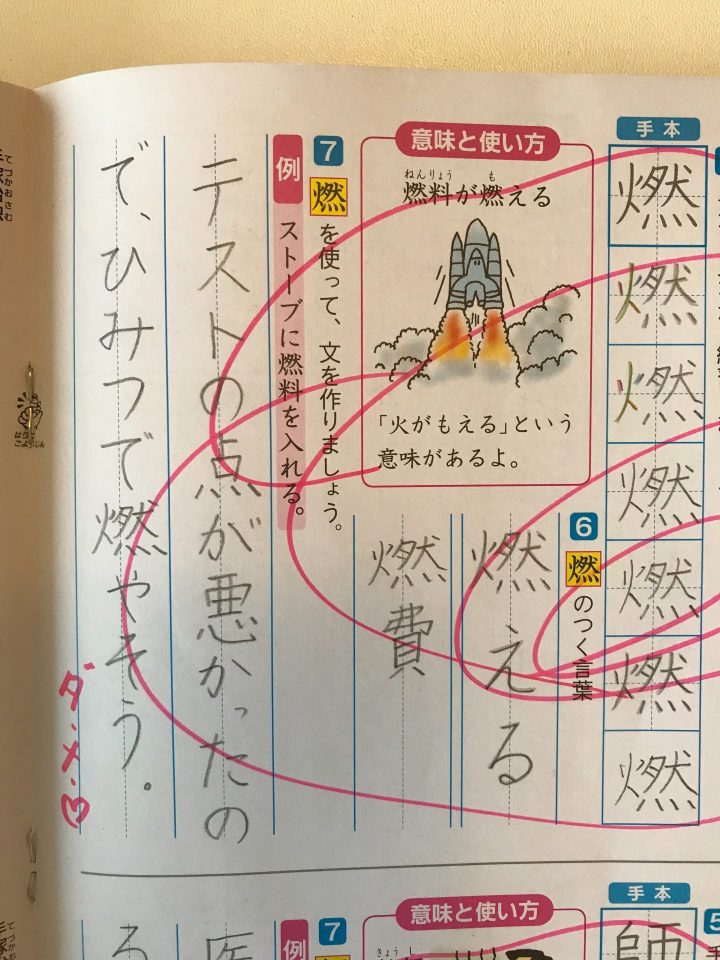 手本
燃
燃
燃
燃
燃
燃
燃
意味と使い方
ねんりょう も
燃料が燃える
「火がもえる」という
意味があるよ。
6 燃のつく言葉
燃える
燃費
7 燃を使って、文を作りましょう。
例 ストーブに燃料を入れる。
テストの点が悪かったの
で、ひみつで燃やそう。
ダ・メ・♡
てづかおさむ
手本
師
意味と使い方
きょうし
7
例
医
る
5